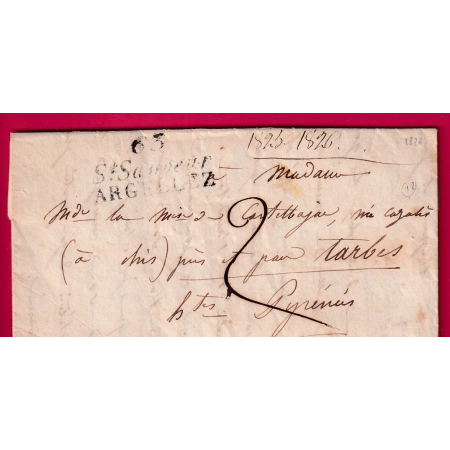 63
St Sauveur
ARGELLEZ
1826-1826.
1826
à Madame
Mde la mise de Castelbajac, née cazalès
(à chis) près et par tarbes
2
htes Pyrénées